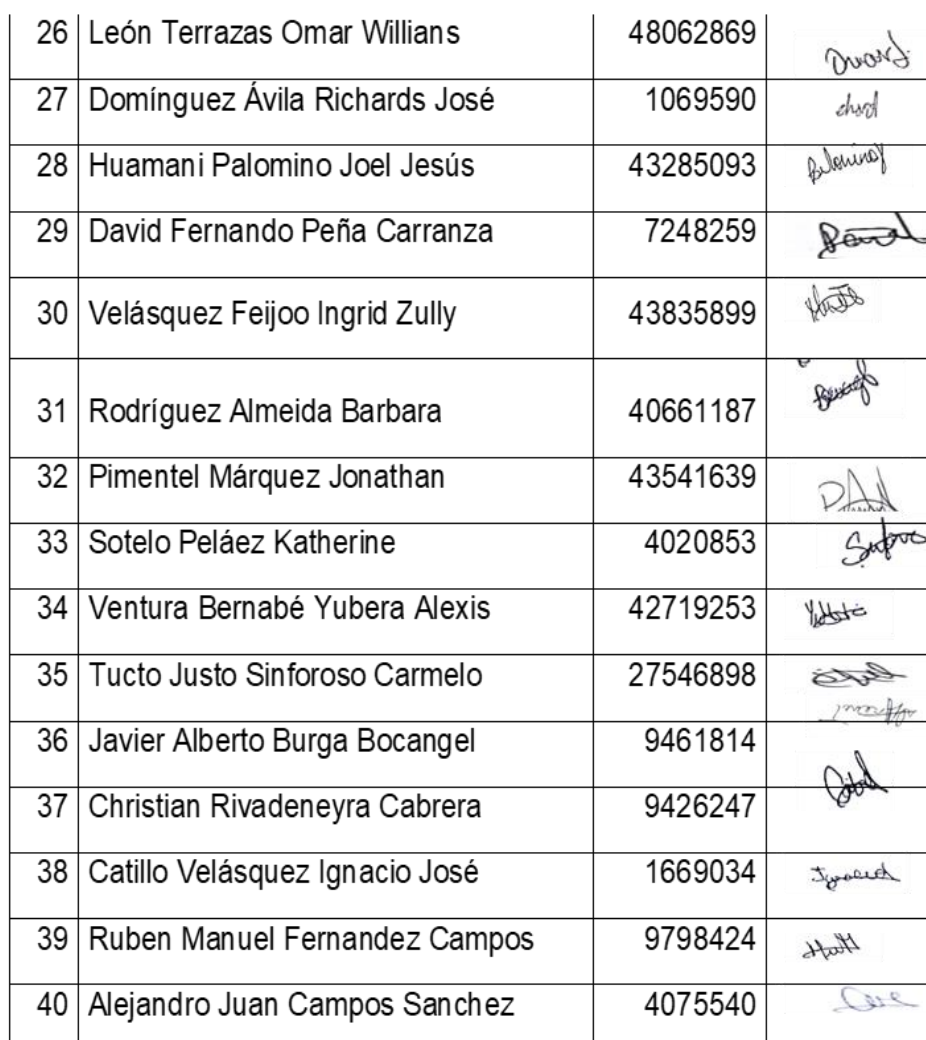 26 León Terrazas Omar Willians 48062869
27 Domínguez Ávila Richards José 1069590 chard
28 Huamani Palomino Joel Jesús 43285093
29 David Fernando Peña Carranza 7248259
30 Velásquez Feijoo Ingrid Zully 43835899
31 Rodríguez Almeida Barbara 40661187
32 Pimentel Márquez Jonathan 43541639
33 Sotelo Peláez Katherine 4020853
34 Ventura Bernabé Yubera Alexis 42719253
35 Tucto Justo Sinforoso Carmelo 27546898
36 Javier Alberto Burga Bocangel 9461814
37 Christian Rivadeneyra Cabrera 9426247
38 Catillo Velásquez Ignacio José 1669034
39 Ruben Manuel Fernandez Campos 9798424
40 Alejandro Juan Campos Sanchez 4075540